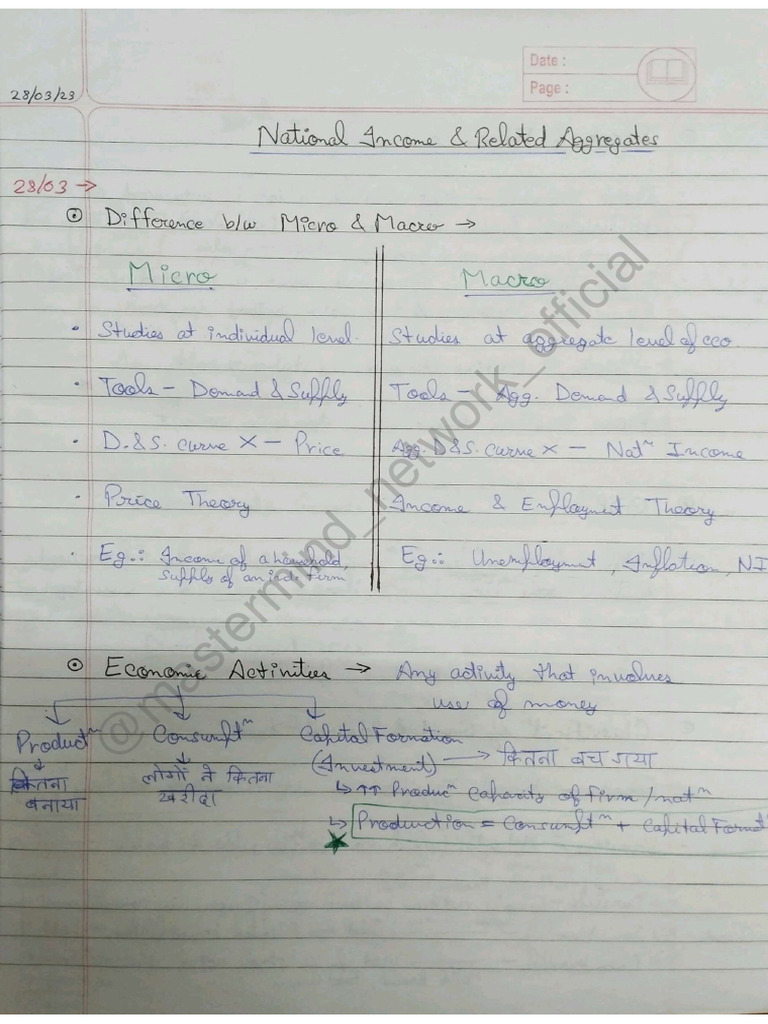 Date :
Page :
28/03/23
National Income & Related Aggregates
28/03 →
⊙ Difference b/w Micro & Macro →
Micro
Macro
• Studies at individual level.
Studies at aggregate level of eco.
• Tools - Demand & Supply
Tools - Agg. Demand & Supply
• D.&S. curve X - Price
Agg. D&S. curve X - Natⁿ Income
• Price Theory
Income & Employment Theory
• Eg.: Income of a household,
supply of an firm
Eg.: Unemployment, Inflation, NI
⊙ Economic Activities → Any activity that involves
use of money
Productⁿ Consumptⁿ Capital Formation
(Investment) → कितना बच गया
कितना
बनाया
लोगों ने कितना
खरीदा
↳ ↑↑ Producⁿ Capacity of Firm/natⁿ
↳ Production = Consumptⁿ + Capital Format
@mastermind_network_official